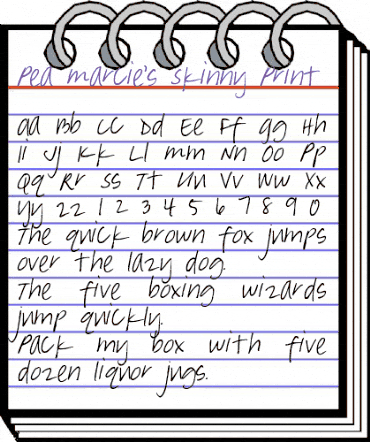 Pea marcie's skinny print
aa Bb cc Dd Ee Ff gg Hh
ii Jj Kk Ll mm Nn Oo Pp
Qq Rr ss Tt Uu Vv Ww Xx
yy zz 1 2 3 4 5 6 7 8 9 0
The quick brown fox jumps
over the lazy dog.
The five boxing wizards
jump quickly.
Pack my box with five
dozen liquor jugs.